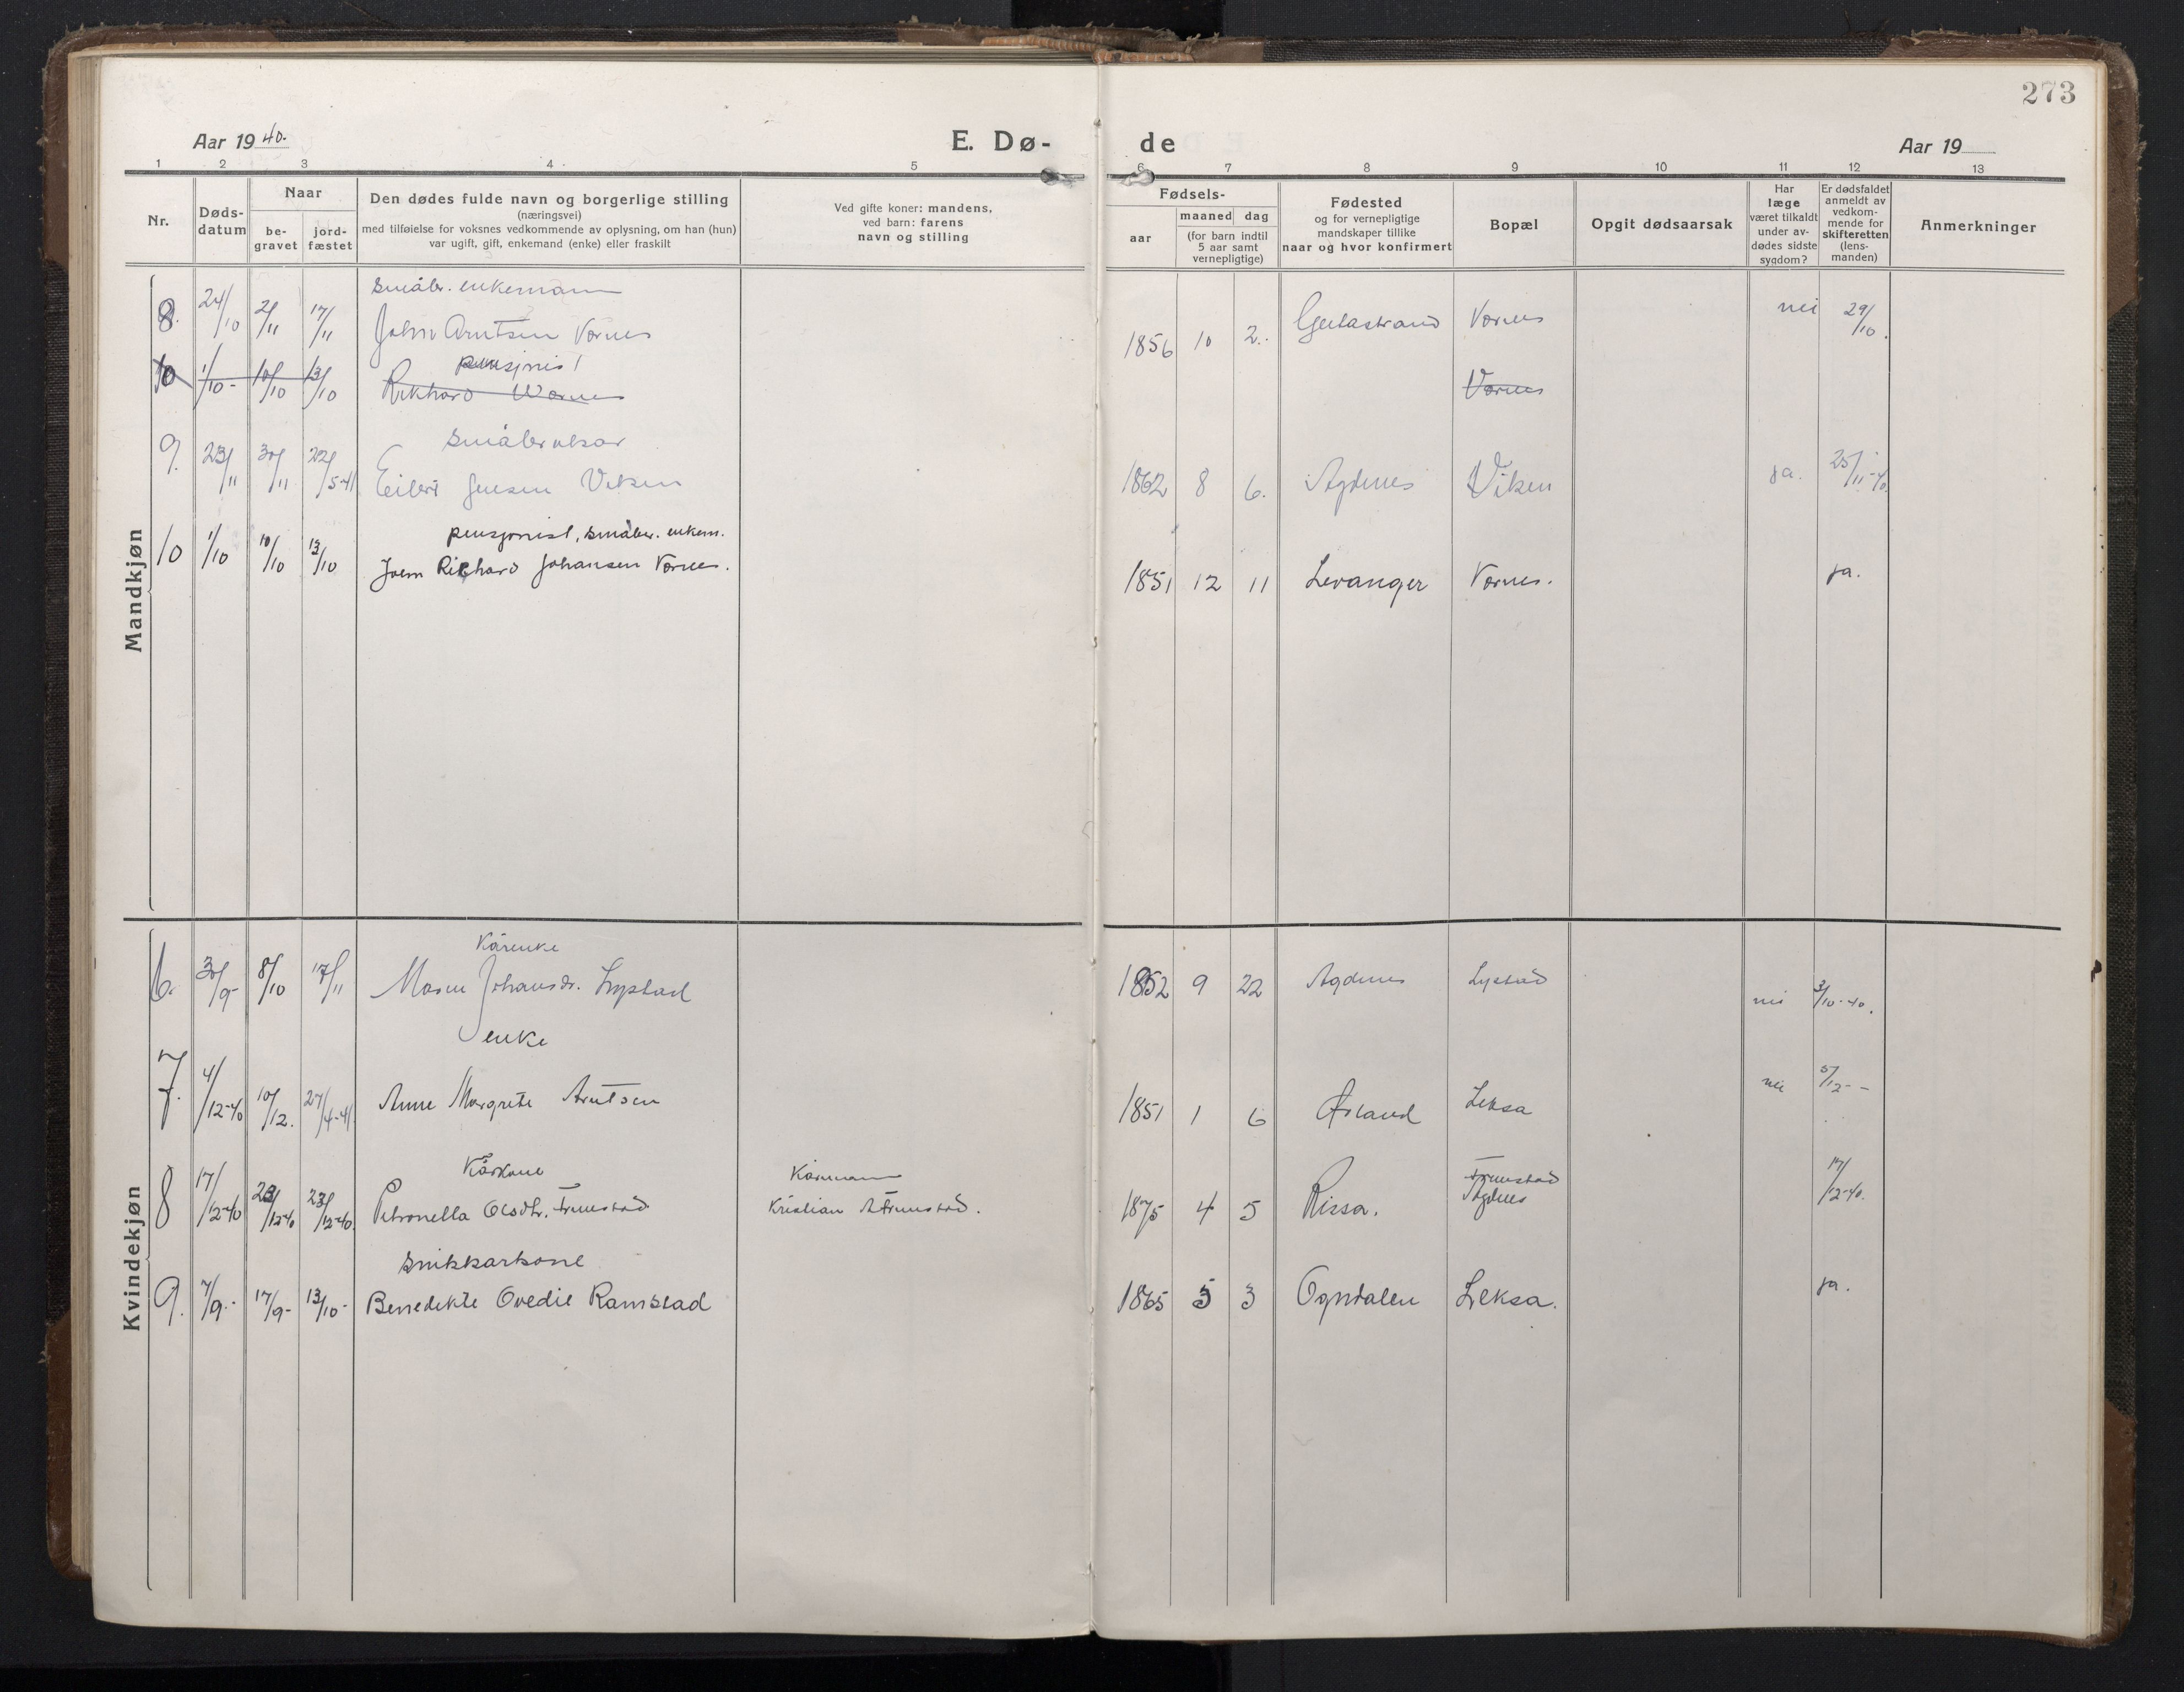 273
Aar 1940.
E. Dø-
de
Aar 19
1 2 3 4 5 6 7 8 9 10 11 12 13
Nr.
Døds-
datum
Naar
be-
gravet
jord-
fæstet
Den dødes fulde navn og borgerlige stilling
(næringsvei)
med tilføielse for voksnes vedkommende av oplysning, om han (hun)
var ugift, gift, enkemand (enke) eller fraskilt
Ved gifte koner: mandens,
ved barn: farens
navn og stilling
Fødsels-
aar
maaned dag
(for barn indtil
5 aar samt
vernepligtige)
Fødested
og for vernepligtige
mandskaper tillike
naar og hvor konfirmert
Bopæl
Opgit dødsaarsak
Har
læge
været tilkaldt
under av-
dødes sidste
sygdom?
Er dødsfaldet
anmeldt av
vedkom-
mende for
skifteretten
(lens-
manden)
Anmerkninger
Mandkjøn
småbr. enkemann
8. 24/10 2/11 17/11 Johan Arntsen Vornes 1856 10 2. Vornes nei 29/10.
pensjonist
10 1/10- 10/10 13/10 Rikhard Wornes Vornes
småbrukar
9. 23/11 30/11 22/5-41 Eilert Jensen Viken 1862 8 6. Agdenes Viken ja. 25/11-40.
pensjonist, småbr. enkem.
10 1/10 10/10 13/10 Johan Richard Johansen Vornes. 1851 12 11 Levanger Vornes. ja.
Kvindekjøn
Kårenke
6. 30/9- 8/10 17/11 Masen Johansdr. Lystad 1852 9 22 Agdenes Lystad nei 3/10-40.
enke
7. 4/12-40 10/12. 27/4-41. Anne Margrete Arntsen 1851 1 6 Ørland Leksa nei 5/12- -
Kårkone Kårmann
8 17/12-40 23/12-40 23/12-40. Petronella Olsdtr. Frennstad Kristian A Frennstad. 1875 4 5 Rissa. Frennstad Agdenes 17/12-40.
snikkarkone
9. 7/9.- 17/9- 13/10- Benedikte Ovedie Ramstad 1865 5 3 Ogndalen Leksa. ja.